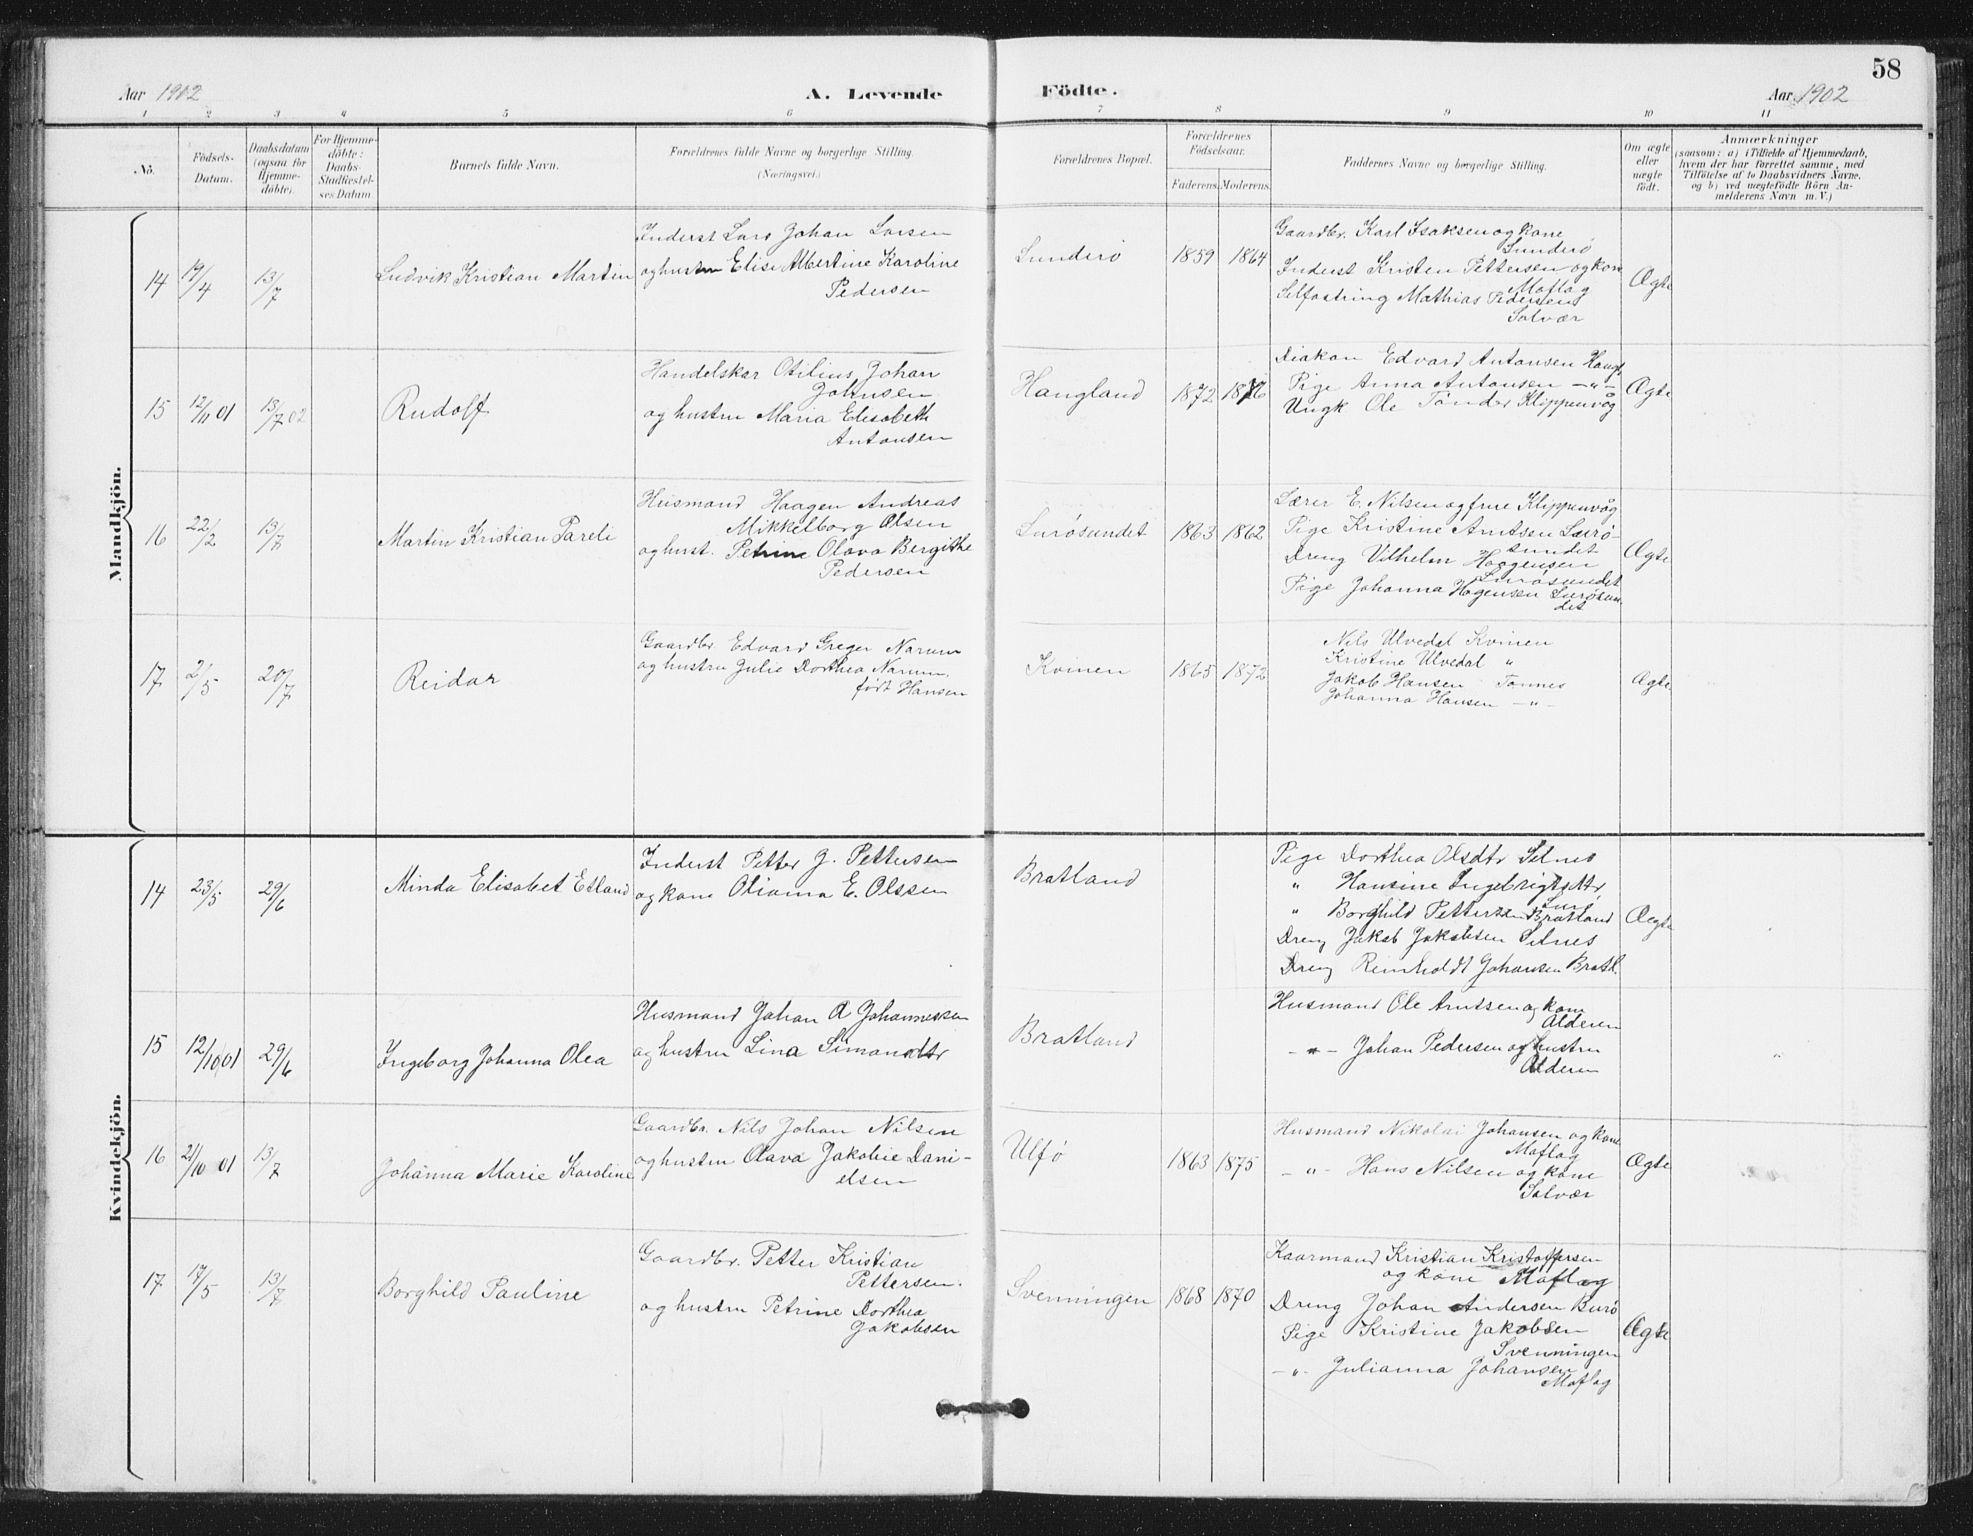 58
Aar 1902
A. Levende
Födte.
Aar 1902
1 2 3 4 5 6 7 8 9 10 11
No.
Födsels-
Datum.
Daabsdatum
(ogsaa for
Hjemme-
döbte).
For Hjemme-
döbte:
Daabs-
Stadfæstel-
ses Datum
Barnets fulde Navn.
Forældrenes fulde Navne og borgerlige Stilling.
(Næringsvei.)
Forældrenes Bopæl.
Forældrenes
Födselsaar.
Faderens. Moderens.
Faddernes Navne og borgerlige Stilling.
Om ægte
eller
uægte
födt.
Anmærkninger
(saasom: a) i Tilfælde af Hjemmedaab,
hvem der har forrettet samme, med
Tilföielse af to Daabsvidners Navne.
og b) ved uægtefödte Börn An-
melderens Navn m. V.)
Mandkjön.
14 19/4 13/7
Ludvik Kristian Martin
Inderst Lars Johan Larsen
og hustru Elise Albertine Karoline
Pedersen
Sunderø
1859 1864
Gaardbr. Karl Isaksen og kone
Sunderø
Inderst Kristen Pettersen og kone
Moflag
Selfostring Mathias Pedersen
Solvær
Ægte
15 12/11 01 13/7 02
Rudolf
Handelskar Otilius Johan
Johnsen
og hustru Maria Elisabeth
Antonsen
Haugland
1872 1876
Diakon Edvard Antonsen Haugl
Pige Anna Antonsen —"—
Ungk Ole Tønder Klippenvåg
Ægte
16 22/2 13/7
Martin Kristian Pareli
Husmand Haagen Andreas
Mikkelborg Olsen
og hust. Petrine Olava Bergithe
Pedersen
Lurøsundet
1863 1862
Lærer E. Nilsen og frue Klippenvåg
Pige Kristine Arntsen Lurø-
sundet
Dreng Vilhelm Haagensen
Lurøsundet
Pige Johanna Hagensen Lurøsun-
det
Ægte
17 2/5 20/7
Reidar
Gaardbr. Edvard Greger Narum
og hustru Julie Dorthea Narum,
født Hansen
Kvinen
1865 1872
Nils Ulvedal Kvinen
Kristine Ulvedal "
Jakob Hansen Tonnes
Johanna Hansen —"—
Ægte
Kvindekjön.
14 23/5 29/6
Minda Elisabet Etland
Inderst Petter J. Pettersen
og kone Oliana E. Olssen
Bratland
Pige Dorthea Olsdtr Selnes
" Hansine Ingebrigtsdtr
Lurø
" Borghild Pettersen Bratland
Dreng Jakob Jakobsen Selnes
Dreng Reinholdt Johansen Bratl.
Ægte
15 12/10 01 29/6
Ingeborg Johanna Olea
Husmand Johan A Johannessen
og hustru Lina Simondtr
Bratland
Husmand Ole Arntsen og kone
Alderen
—"— Johan Pedersen og hustru
Alderen
16 21/10 01 13/7
Johanna Marie Karoline
Gaardbr. Nils Johan Nilsen
og hustru Olava Jakobie Dani-
elsen
Ulfø
1863 1875
Husmand Nikolai Johansen og kone
Moflag
—"— Hans Nilsen og kone
Solvær
Ægte
17 17/5 13/7
Borghild Pauline
Gaardbr. Petter Kristian
Pettersen.
og hustru Petrine Dorthea
Jakobsen
Svenningen
1868 1870
Kaarmand Kristian Kristoffersen
og kone Moflag
Dreng Johan Andersen Burø
Pige Kristine Jakobsen
Svenningen
—"— Julianna Johansen
Moflag
Ægte